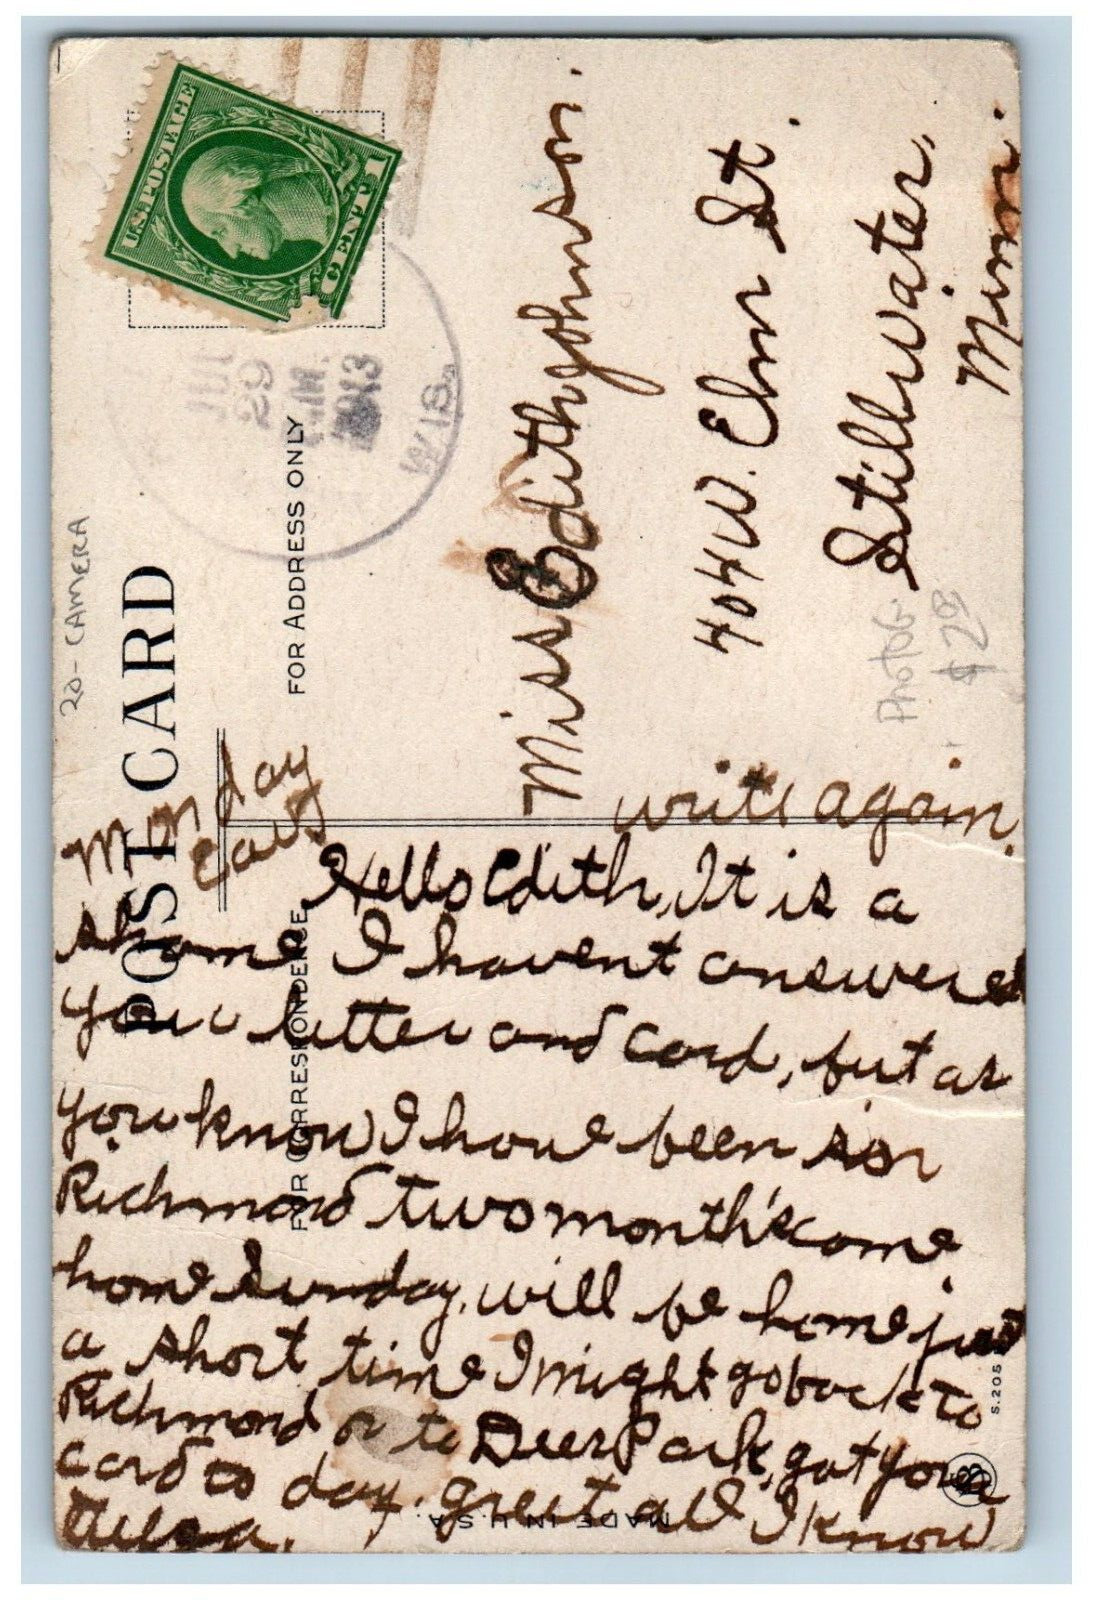 20- CAMERA
POST CARD
FOR ADDRESS ONLY
FOR CORRESPONDENCE
U.S. POSTAGE
1 CENT 1
29
1913
WIS.
Miss Edith Johnson.
404 W. Elm St.
Stillwater,
Minn.
Photog.
$2.00
write again.
Monday
Eav
Hello Edith, It is a
shame I havent answered
your letter and card, but as
you know I have been in
Richmond two month's came
home Sunday, will be home just
a short time I might go back to
Richmond or to Deer Park, got your
card to day. greet all I know
MADE IN U.S.A.
S.205